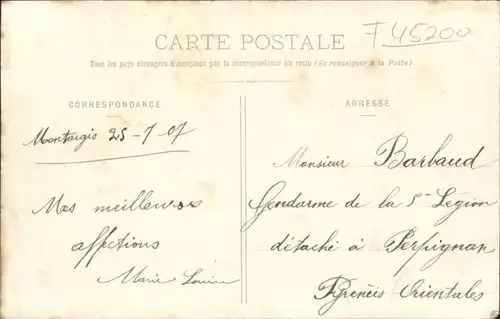 CARTE POSTALE
F 45200
Tous les pays étrangers n'acceptent pas la correspondance au recto (Se renseigner à la Poste)
CORRESPONDANCE
Montargis 25-7 07
Mes meilleures
affections
Marie
ADRESSE
Monsieur Barbaud
Gendarme de la 5e Légion
détaché à Perpignan
Pyrénéis Orientales